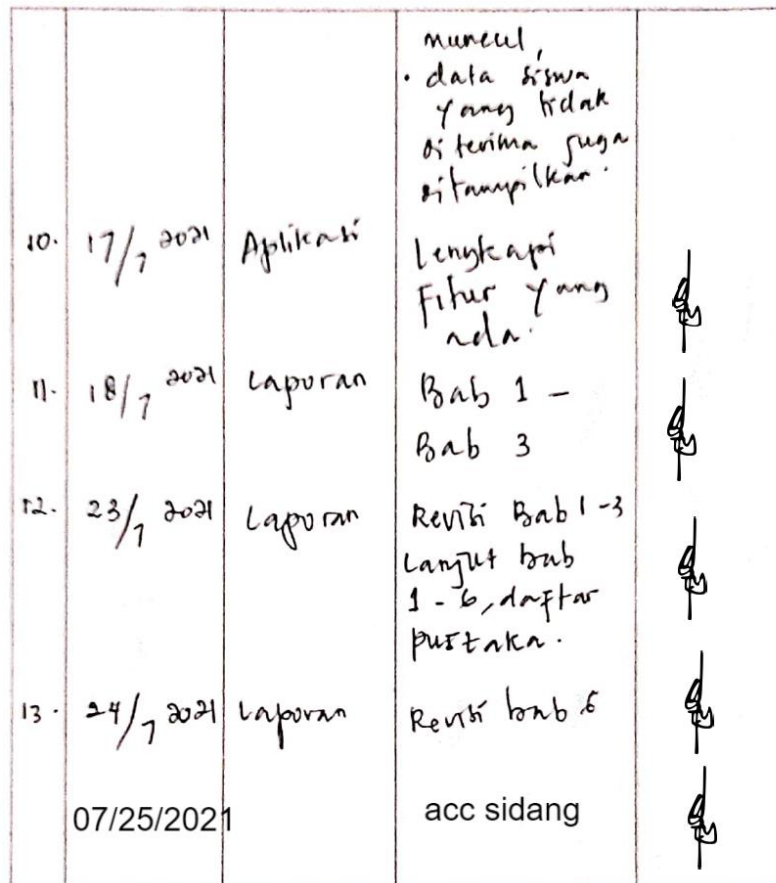 muncul,
• data siswa
yang tidak
diterima juga
ditampilkan.
10. 17/7 2021 Aplikasi Lengkapi
Fitur yang
ada.
11. 18/7 2021 Laporan Bab 1 -
Bab 3
12. 23/7 2021 Laporan Revisi Bab 1-3
Lanjut bab
1-6, daftar
pustaka.
13. 24/7 2021 Laporan Revisi bab 6
07/25/2021 acc sidang